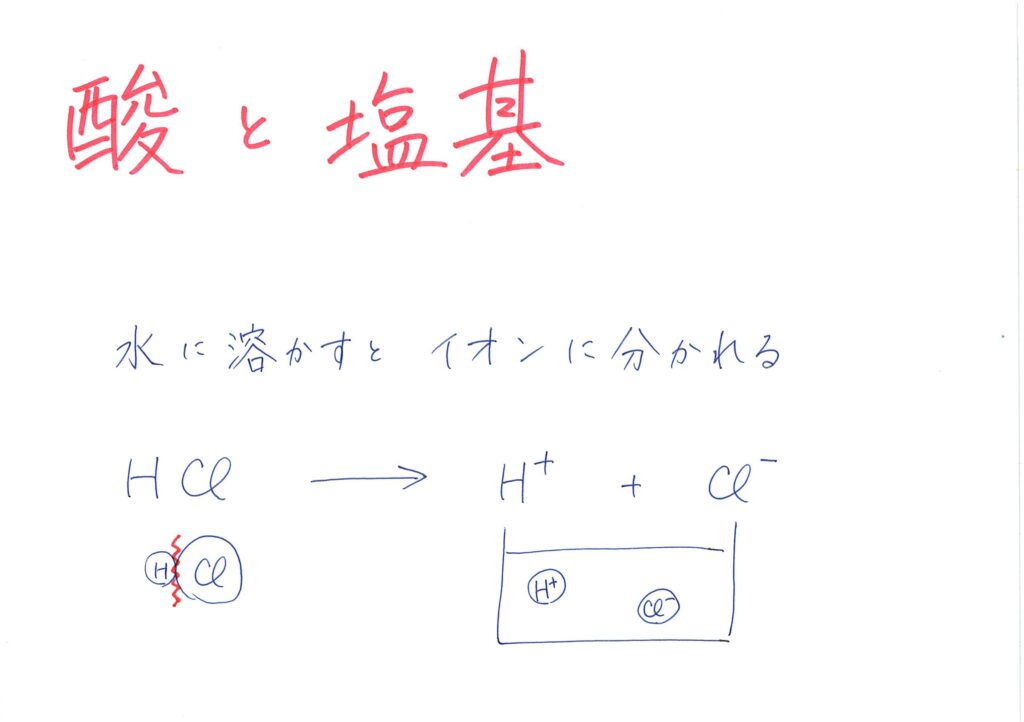 酸と塩基
水に溶かすと イオンに分かれる
HCl → H⁺ + Cl⁻
H Cl
H⁺ Cl⁻